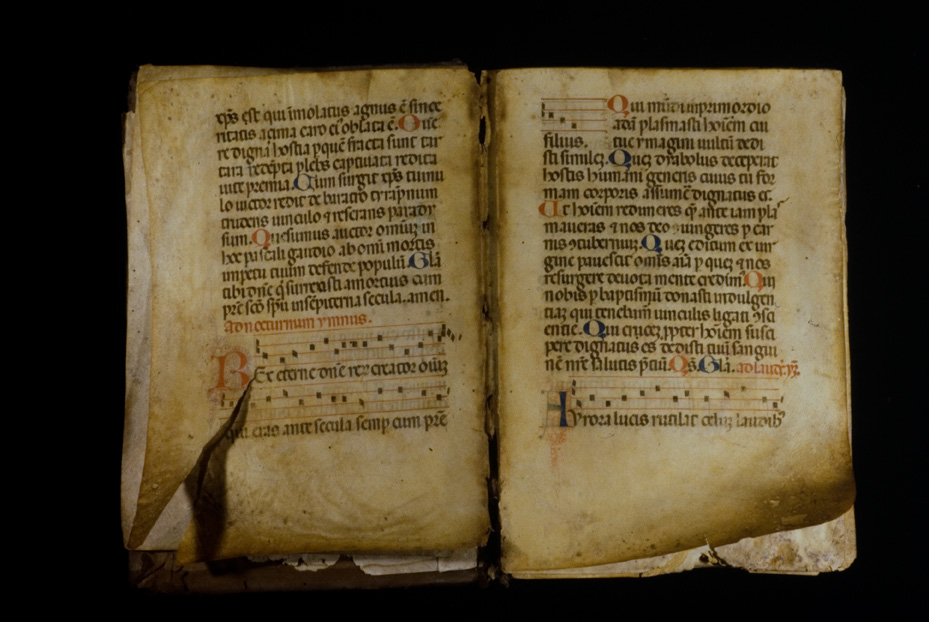 xp̄s est qui īmolatus agnus ē since
ritatis açima caro ei' oblata ē. O ue
re digna hostia p quē fracta sunt tar
tara redēpta plebs captiuata redita
uite premia. Cum surgit xp̄s tumu
lo uictor redit de baratro tyrāp̄num
trudens uinculo ⁊ reserans paradi
sum. Quesumus auctor omniū in
hoc pascali gaudio ab omī mortis
impetu tuum defende populū. Glā
tibi dn̄e q̄ surrexisti a mortuis cum
pr̄e sc̄o sp̄u in sēpiterna secula. amen.
ad nocturnum ymnus.
REx eterne dn̄e rex creator oīuȝ
qui eras ante secula semp cum pr̄e
Qui mūdi in primordio
adā plasmasti hoīem cui
filius. tue ymagini uultū dedi
sti simileȝ. Queȝ dyabolus deceperat
hostis humani generis cuius tu for
mam corporis assumē dignatus es.
Ut hoīem redimeres q̄ ante iam pla
maueras ⁊ nos deo iungeres p car
nis ɔtuberniuȝ. Queȝ editum ex uir
gine pauescit omīs aīa p queȝ ⁊ nos
resurgere deuota mente credim'. Qui
nobis p baptismū donasti indulgen
tiaȝ qui tenebam' uinculis ligati ɔsci
entie. Qui cruceȝ ꝓpter hoīem susci
pere dignatus es dedisti tuū sangui
nē nr̄e salutis p̄ciū. Qs̄. Glā. ad laudes. yȝ.
AUrora lucis rutilat celuȝ laudib'